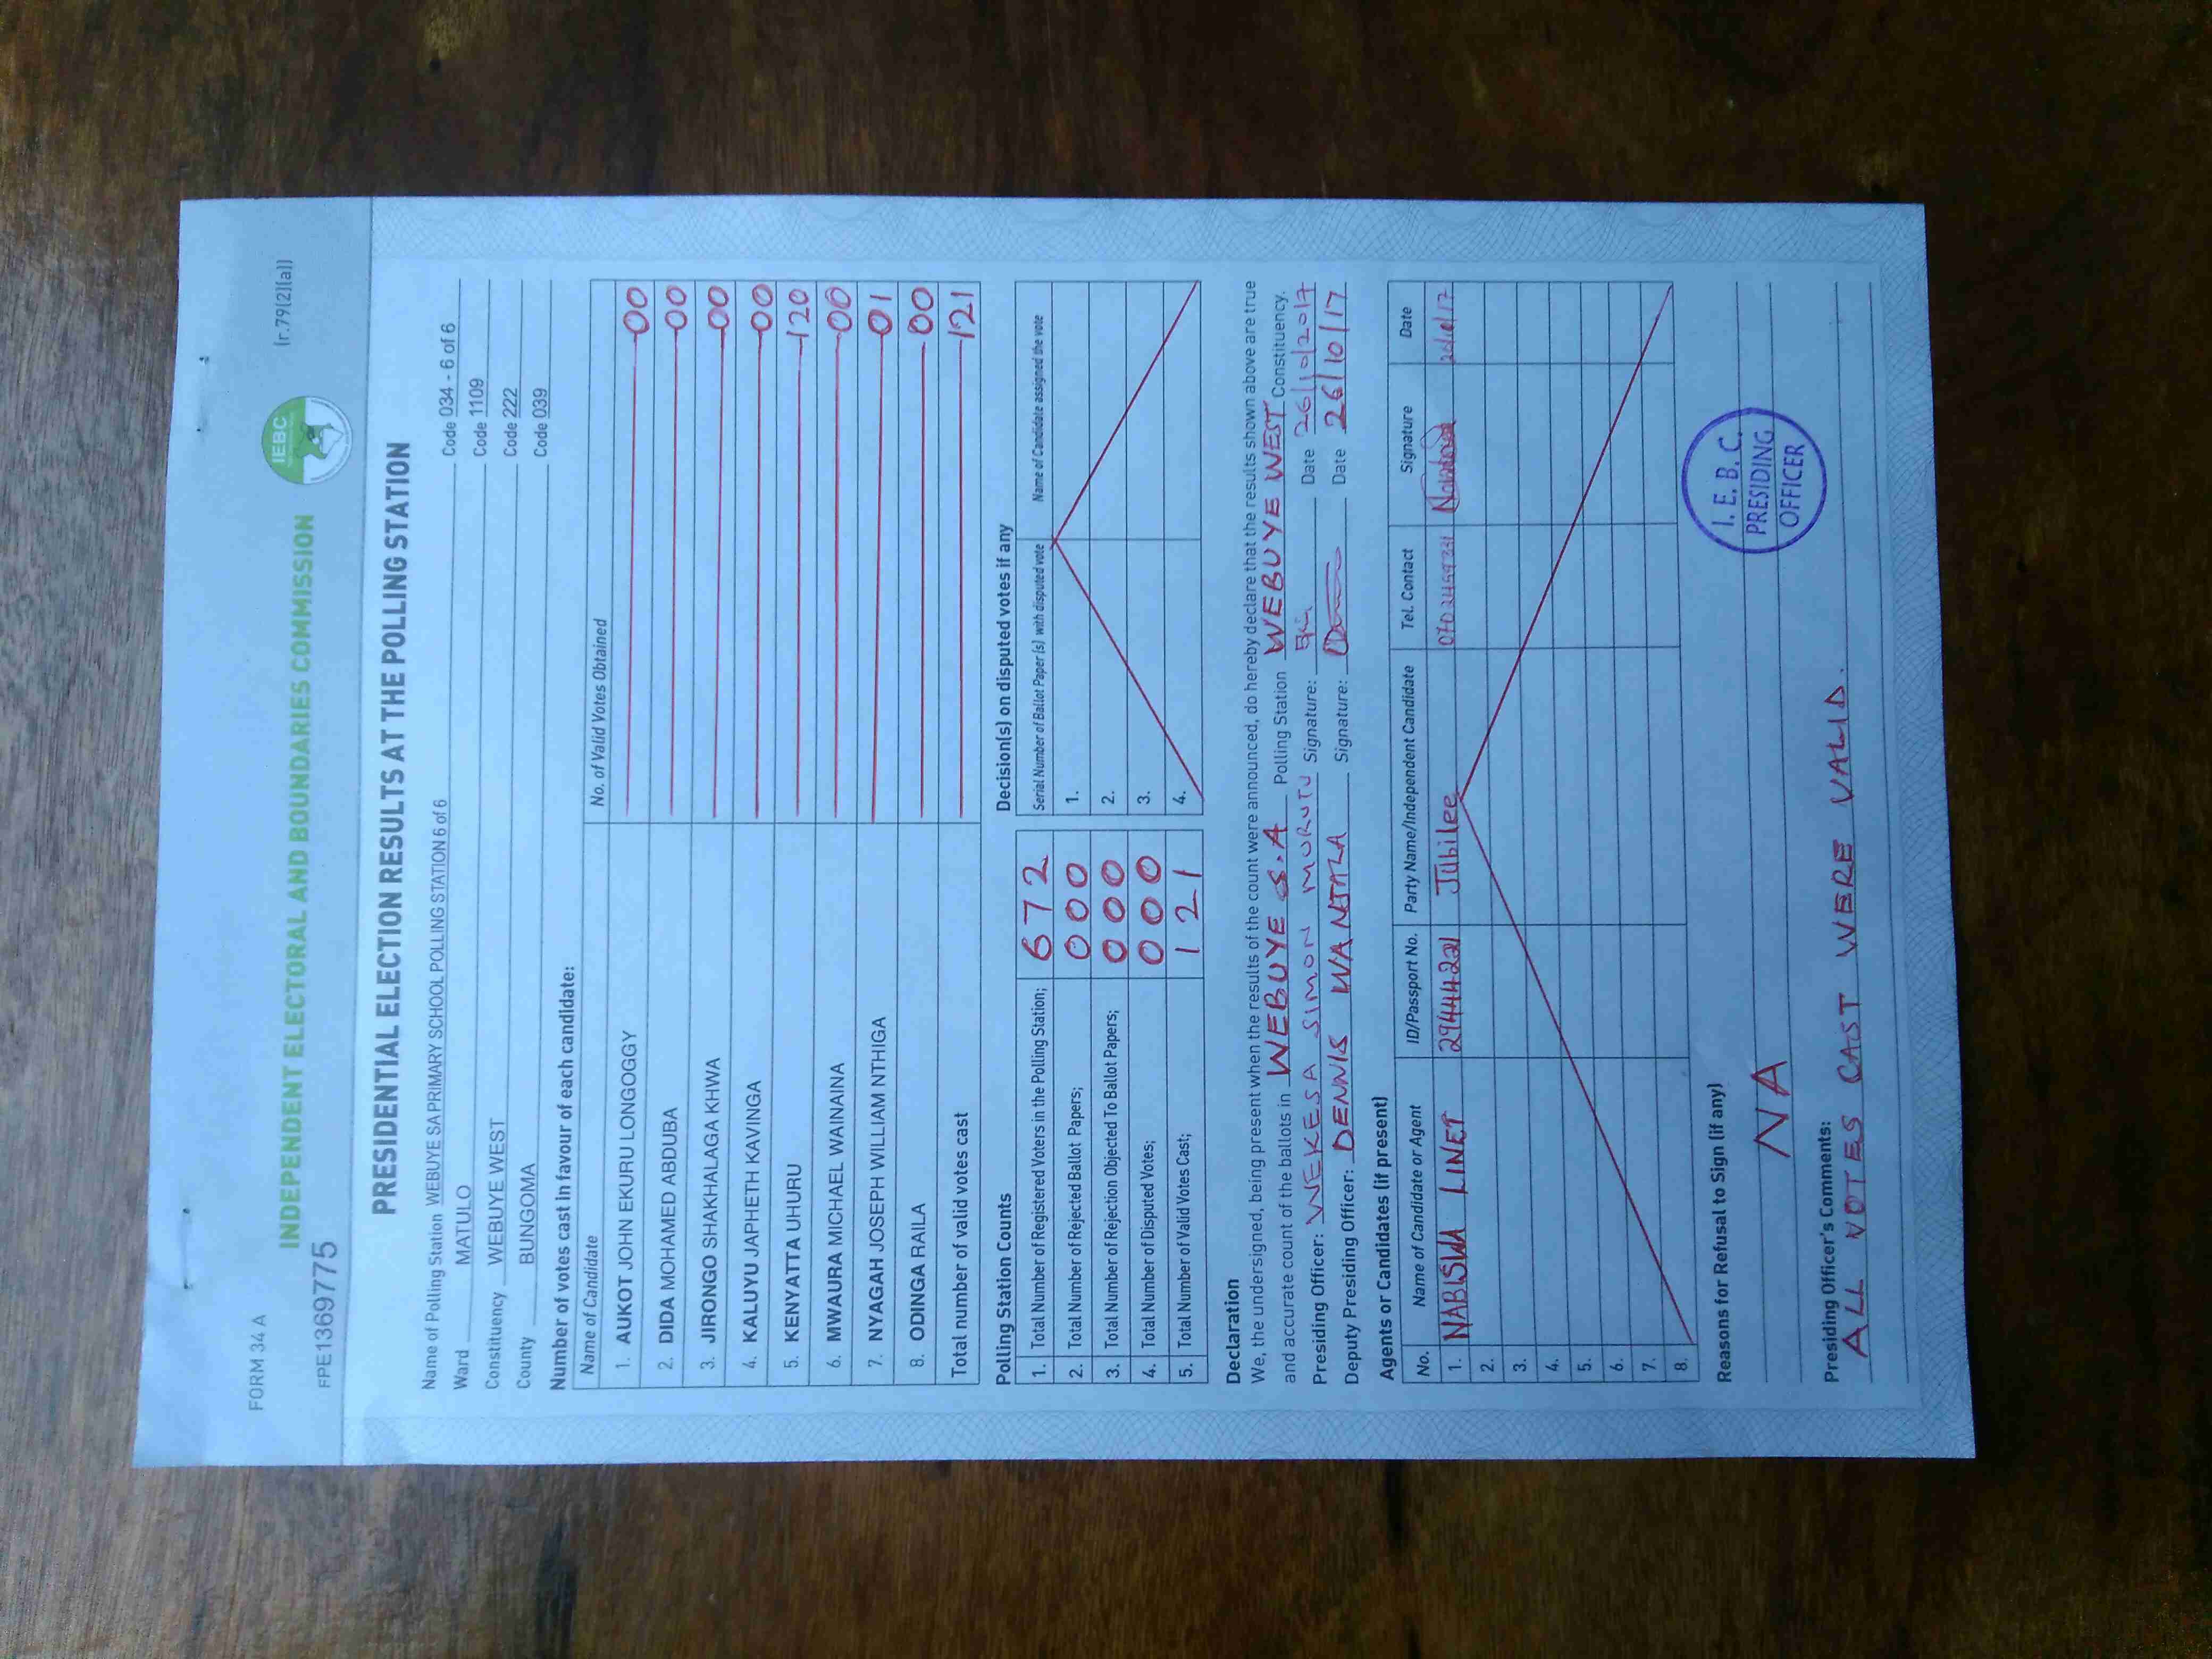 FORM 34 A
(r.79(2)(a))
IEBC
INDEPENDENT ELECTORAL AND BOUNDARIES COMMISSION
FPE1369775
PRESIDENTIAL ELECTION RESULTS AT THE POLLING STATION
Name of Polling Station WEBUYE SA PRIMARY SCHOOL POLLING STATION 6 of 6 Code 034 - 6 of 6
Ward MATULO Code 1109
Constituency WEBUYE WEST Code 222
County BUNGOMA Code 039
Number of votes cast in favour of each candidate:
Name of Candidate No. of Valid Votes Obtained
1. AUKOT JOHN EKURU LONGOGGY 00
2. DIDA MOHAMED ABDUBA 00
3. JIRONGO SHAKHALAGA KHWA 00
4. KALUYU JAPHETH KAVINGA 00
5. KENYATTA UHURU 120
6. MWAURA MICHAEL WAINAINA 00
7. NYAGAH JOSEPH WILLIAM NTHIGA 01
8. ODINGA RAILA 00
Total number of valid votes cast 121
Polling Station Counts
1. Total Number of Registered Voters in the Polling Station; 672
2. Total Number of Rejected Ballot Papers; 000
3. Total Number of Rejection Objected To Ballot Papers; 000
4. Total Number of Disputed Votes; 000
5. Total Number of Valid Votes Cast; 121
Decision(s) on disputed votes if any
Serial Number of Ballot Paper (s) with disputed vote Name of Candidate assigned the vote
1.
2.
3.
4.
Declaration
We, the undersigned, being present when the results of the count were announced, do hereby declare that the results shown above are true
and accurate count of the ballots in WEBUYE S.A Polling Station WEBUYE WEST Constituency.
Presiding Officer: WEKESA SIMON MURUTU Signature: Date 26/10/2017
Deputy Presiding Officer: DENNIS WANJALA Signature: Date 26/10/17
Agents or Candidates (if present)
No. Name of Candidate or Agent ID/Passport No. Party Name/Independent Candidate Tel. Contact Signature Date
1. NABISWA LINET Jubilee 26/10/17
2.
3.
4.
5.
6.
7.
8.
Reasons for Refusal to Sign (if any)
NA
I.E.B.C.
PRESIDING
OFFICER
Presiding Officer's Comments:
ALL VOTES CAST WERE VALID.